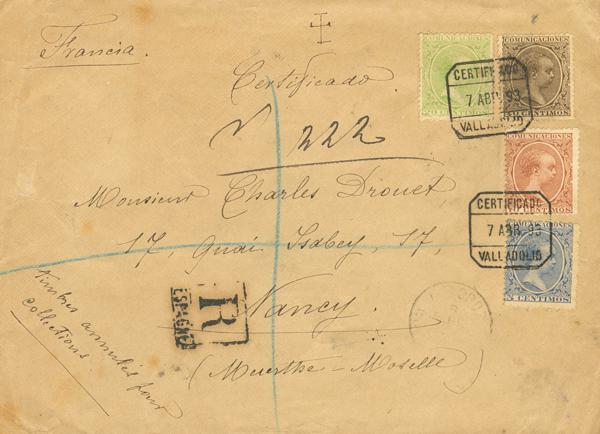 Francia.
Certificado
Nº 222
Monsieur Charles Drouet
17, Quai Isabey, 17,
Nancy.
(Meurthe-Moselle)
timbres annulés pour
collections
R
ESPAGNE
COMUNICACIONES
COMUNICACIONES
CERTIFICADO
7 ABR 93
VALLADOLID
COMUNICACIONES
CERTIFICADO
7 ABR 93
VALLADOLID
COMUNICACIONES
5 CENTIMOS